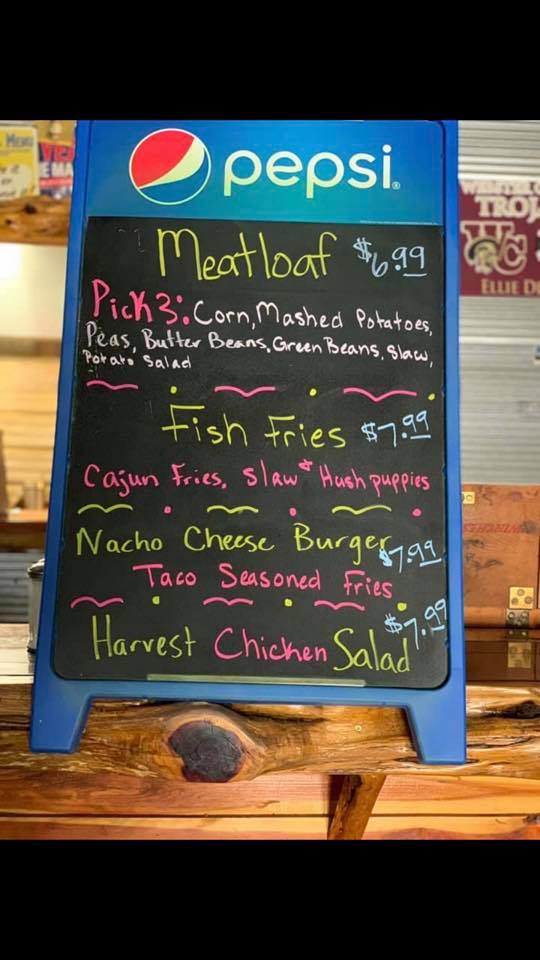 pepsi
Meatloaf $6.99
Pick 3: Corn, Mashed Potatoes,
Peas, Butter Beans, Green Beans, Slaw,
Potato Salad
Fish Fries $7.99
Cajun Fries, Slaw & Hushpuppies
Nacho Cheese Burger $7.99
Taco Seasoned Fries
Harvest Chicken Salad $7.99
MENU
TROJ
WC
ELLIE D